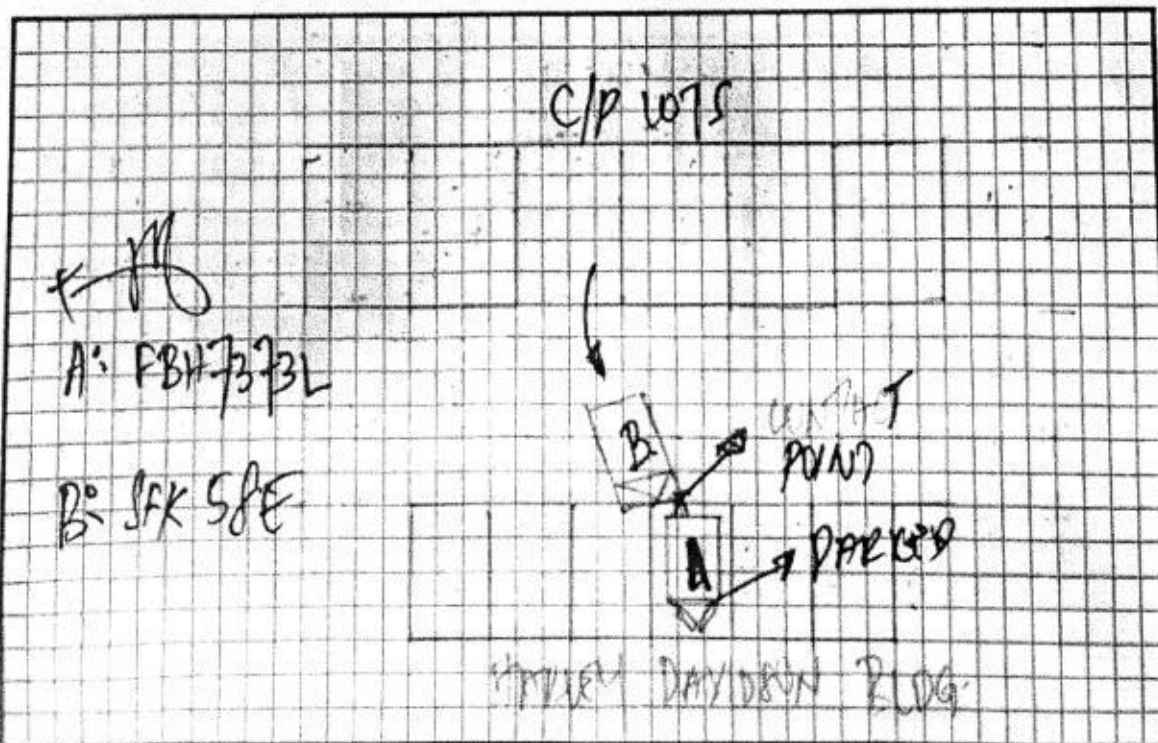 C/P LOTS
A: FBH7373L
B: SFK 58E
B
CONTACT
POINT
A
PARKED
HARLEY DAVIDSON BLDG.